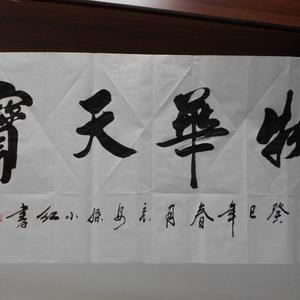 物華天寶
癸巳年春月长安孫小红書